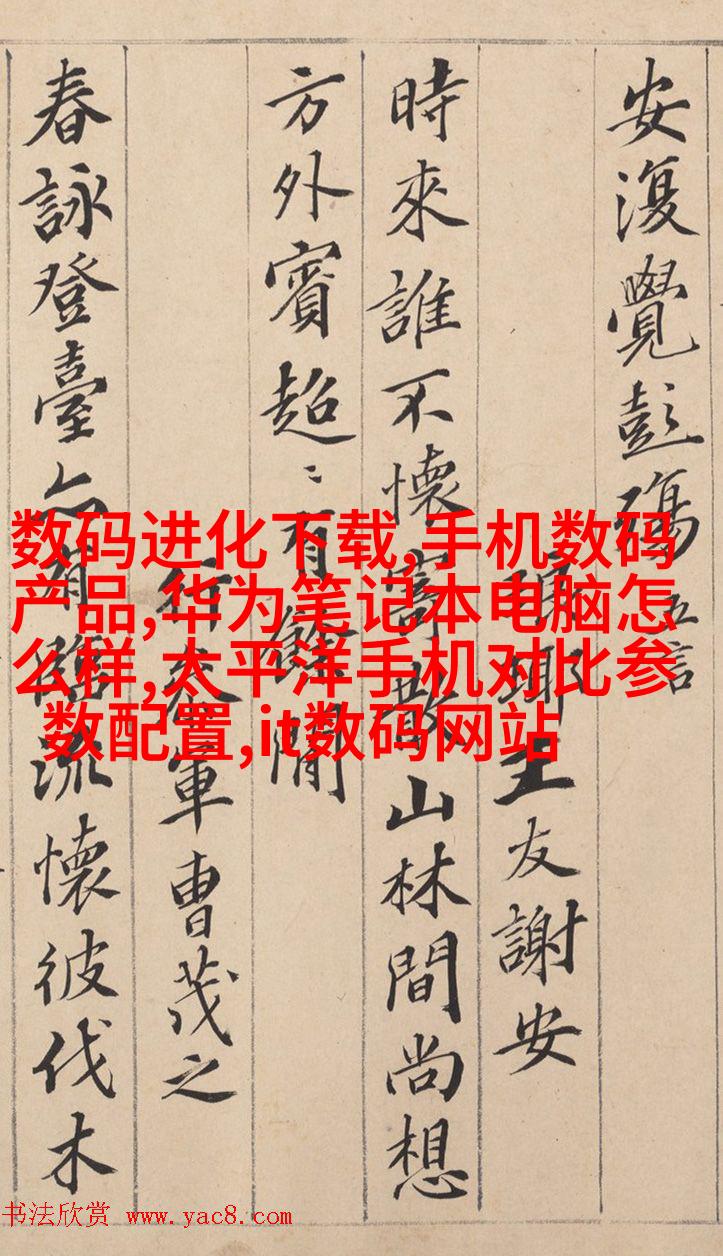 安復覺彭殤五言
琅瑯王友謝安
時來誰不懷寄散山林間尚想
方外賓超〻有餘閒
行參軍曹茂之
春詠登臺亦有臨流懷彼伐木
数码进化下载,手机数码
产品,华为笔记本电脑怎
么样,太平洋手机对比参
数配置,it数码网站
书法欣赏 www.yac8.com